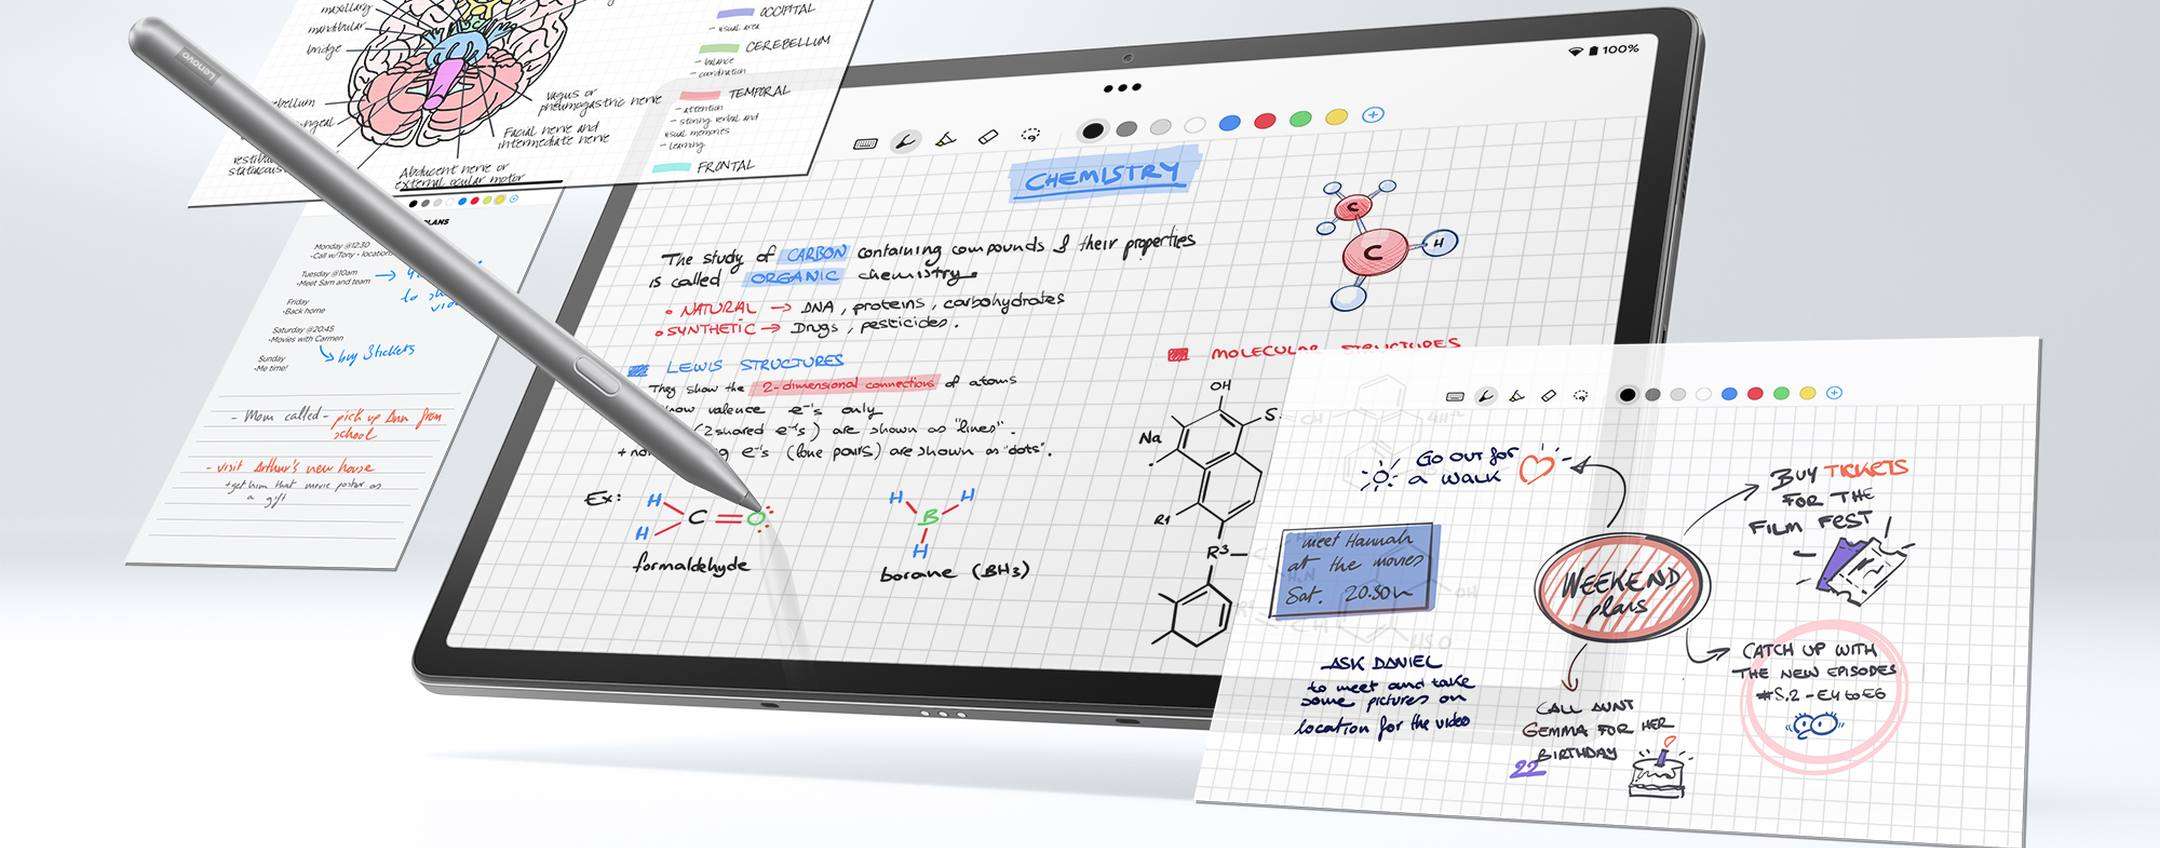 maxillary
mandibular
bridge
vestibul
Vagus or
pneumogastric nerve
Facial nerve and
intermediate nerve
Abducent nerve or
external ocular motor
OCCIPITAL
- visual area
CEREBELLUM
- balance
- coordination
TEMPORAL
- attention
- storing verbal and
visual memories
- learning
FRONTAL
Lenovo
PLANS
Monday @12:30
-Call w/Tony - location
Tuesday @10am
-Meet Sam and team
Friday
-Back home
Saturday @20:45
-Movies with Carmen
buy 3 tickets
Sunday
-Me time!
- Mom called - pick up Ann from
school
- visit Arthur's new house
+get him that movie poster as
a gift
100%
CHEMISTRY
The study of CARBON containing compounds & their properties
is called ORGANIC chemistry.
NATURAL → DNA, proteins, carbohydrates
SYNTHETIC → Drugs, pesticides.
LEWIS STRUCTURES
They show the 2-dimensional connections of atoms
valence e⁻'s only
(2 shared e⁻'s) are shown as "lines".
e⁻'s (lone pairs) are shown as "dots".
Ex:
H
H
C
O
formaldehyde
H
H
B
H
borane (BH3)
C
C
H
MOLECULAR STRUCTURES
OH
S
Na
R1
R3
GO OUT FOR
A WALK
meet Hannah
at the movies
Sat. 20:30h
ASK DANIEL
to meet and take
some pictures on
location for the video
WEEKEND
plans
BUY TICKETS
FOR THE
FILM FEST
CATCH UP WITH
THE NEW EPISODES
#S.2 - E4 to E6
CALL AUNT
GEMMA FOR HER
BIRTHDAY
22